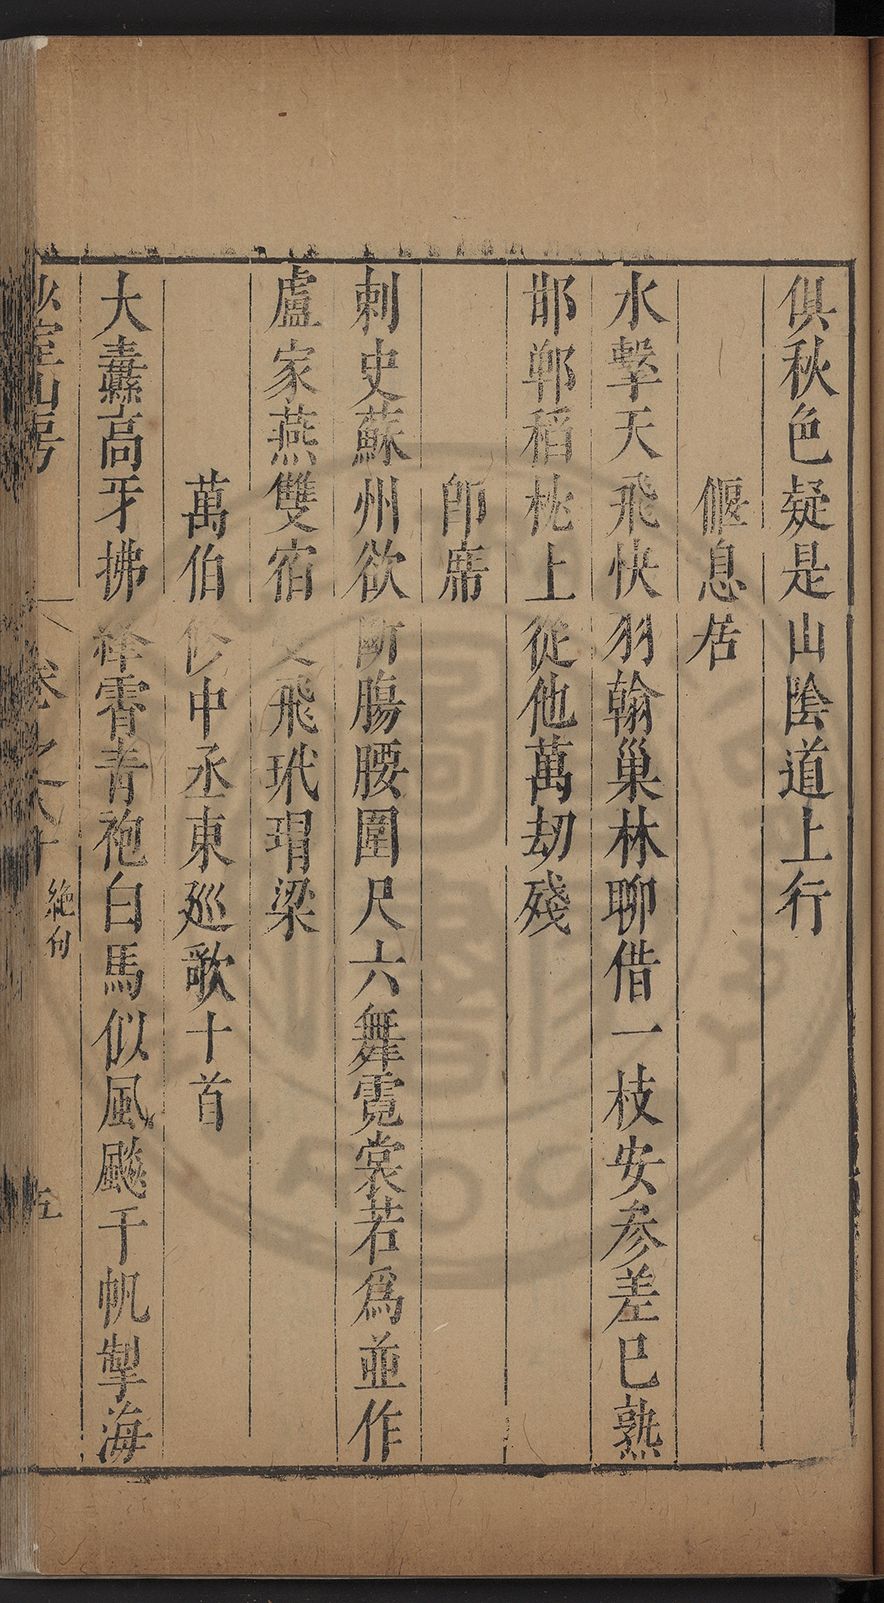 俱秋色疑是山陰道上行
偃息居
水擊天飛快羽翰巢林聊借一枝安參差巳熟
邯鄲稻枕上從他萬劫殘
即席
刺史蘇州欲斷腸腰圍尺六舞霓裳若爲並作
盧家燕雙宿飛玳瑁梁
萬伯修中丞東巡歌十首
大纛高牙拂絳霄青袍白馬似風飈千帆掣海
少室山房
卷之八十
絶句
五